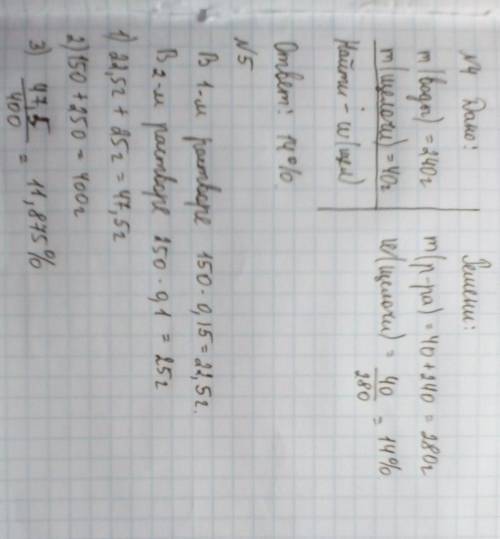 №4 Дано:
m(вода) = 240г
m(щелочи) = 40г
Найти - w(щел)
Решени:
m(р-ра) = 40 + 240 = 280г
w(щелочи) = 40/280 = 14%
Ответ: 14%.
№5
В 1-м растворе 150 · 0,15 = 22,5г.
В 2-м растворе 250 · 0,1 = 25г
1) 22,5г + 25г = 47,5г
2) 150 + 250 = 400г
3) 47,5/400 = 11,875%